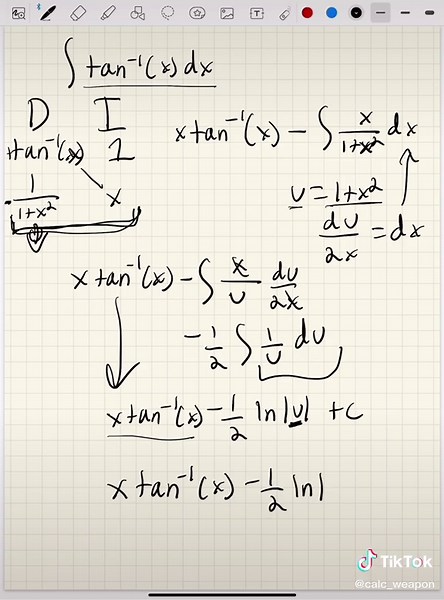 ∫ tan⁻¹(x) dx
D I
tan⁻¹(x) 1
1/(1+x²) x
x tan⁻¹(x) − ∫ x/(1+x²) dx
u = 1+x²
du/2x = dx
x tan⁻¹(x) − ∫ x/u du/2x
−1/2 ∫ 1/u du
x tan⁻¹(x) − 1/2 ln|u| + c
x tan⁻¹(x) − 1/2 ln|
TikTok
@calc_weapon